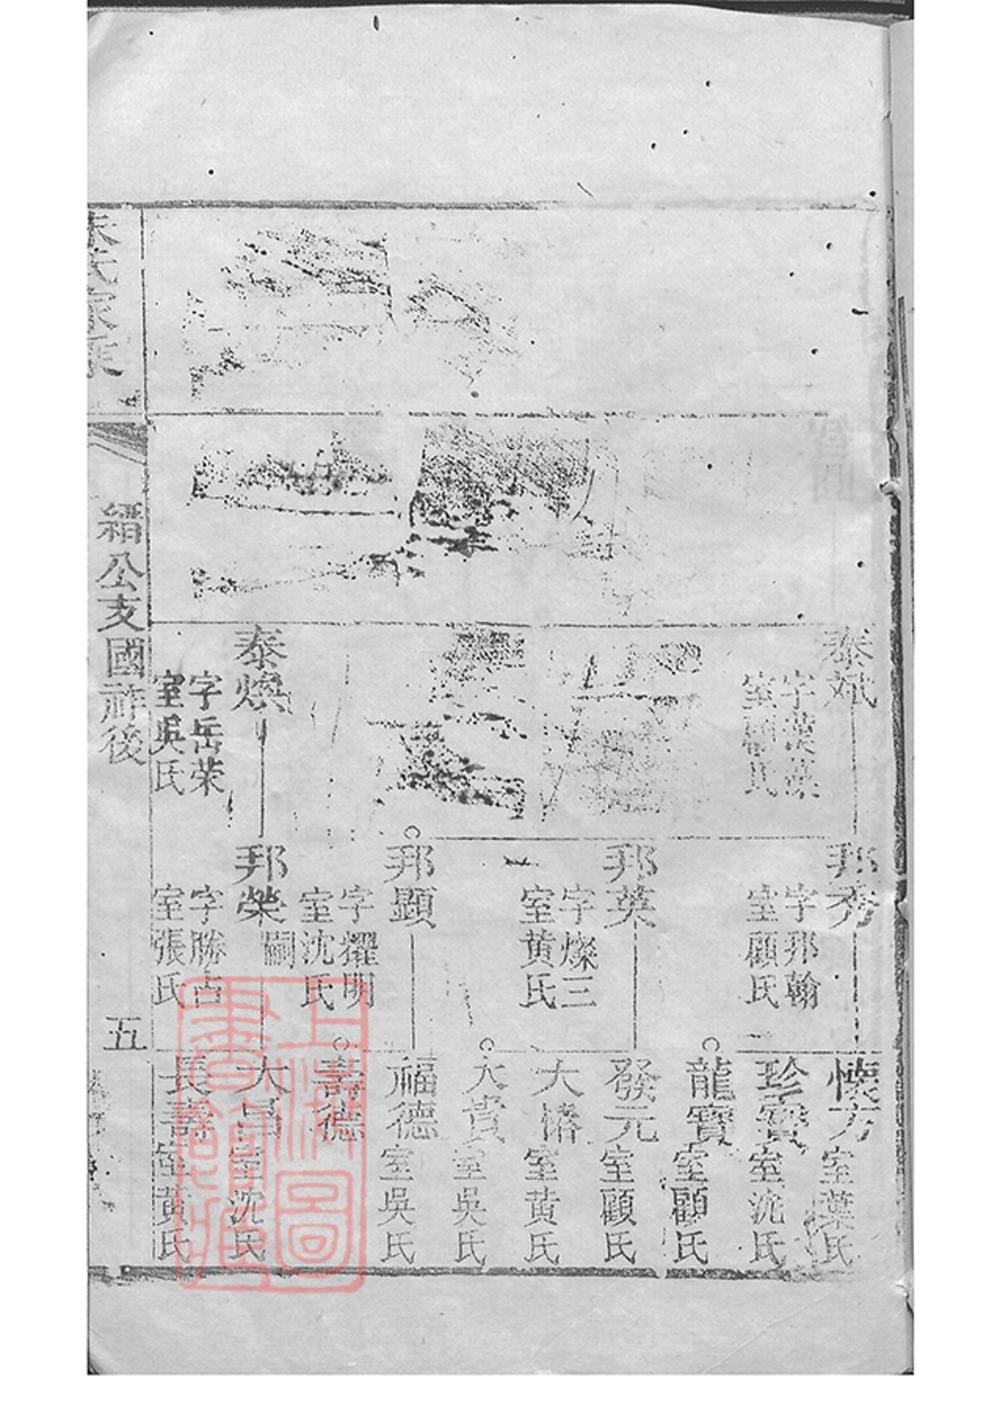 泰斌
字漢葉
室顧氏
泰煥
字岳荣
室吳氏
邦秀
字邦翰
室顧氏
邦英
字燦三
室黄氏
邦顯
字耀明
室沈氏
邦榮嗣
字勝占
室張氏
懷方室葉氏
珍寶室沈氏
龍寶室顧氏
發元室顧氏
大椿室黄氏
大貴室吳氏
福德室吳氏
壽德
大昌室沈氏
長壽室黄氏
縉公支國祚後
五
上海圖書館藏